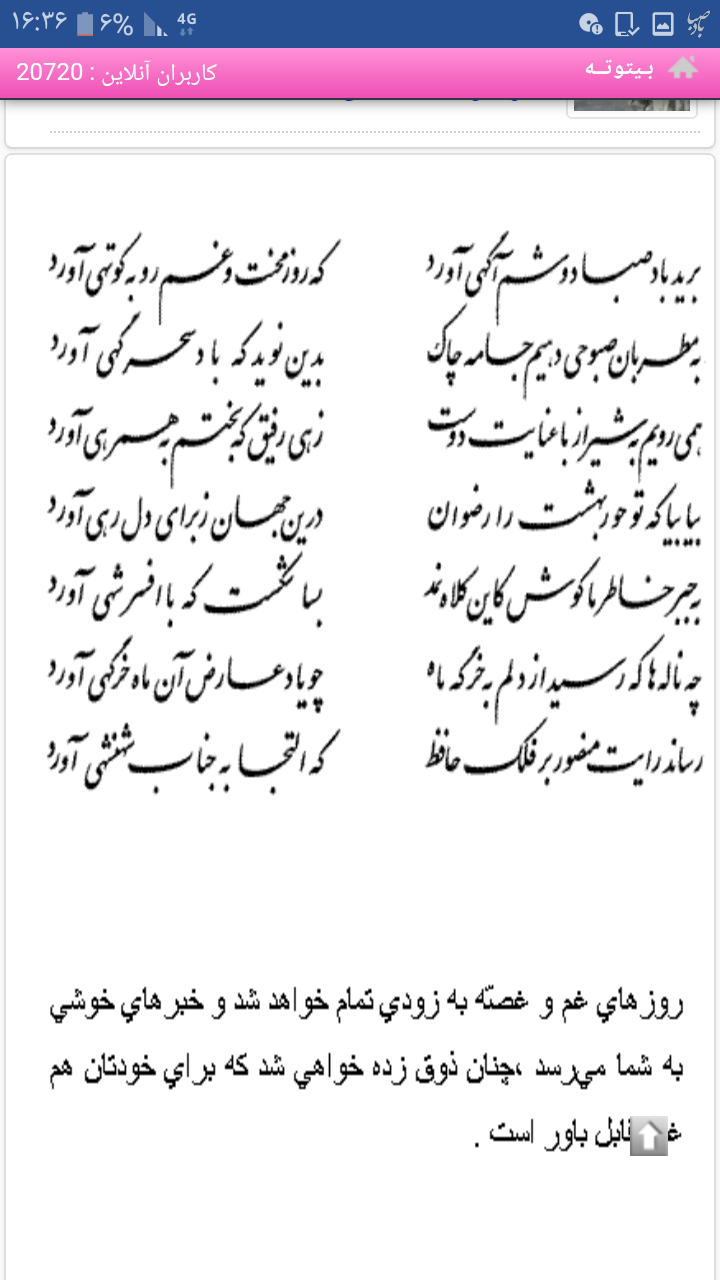 ۱۶:۳۶ ۶% 4G
بیتوته
کاربران آنلاین : 20720
برید باد صبا دوشم آگهی آورد که روز محنت و غم رو به کوتهی آورد
به مطربان صبوحی دهیم جامه چاک بدین نوید که باد سحرگهی آورد
همی رویم به شیراز با عنایت دوست زهی رفیق که بختم به همرهی آورد
بیا بیا که تو حور بهشت را رضوان درین جهان ز برای دل رهی آورد
به جبر خاطر ما کوش کاین کلاه نمد بسا شکست که با افسر شهی آورد
چه ناله ها که رسید از دلم به خرگه ماه چو یاد عارض آن ماه خرگهی آورد
رساند رایت منصور بر فلک حافظ که التجا به جناب شهنشهی آورد
روزهاي غم و غصّه به زودي تمام خواهد شد و خبرهاي خوشي
به شما مي‌رسد ،چنان ذوق زده خواهي شد که براي خودتان هم
قابل باور است .